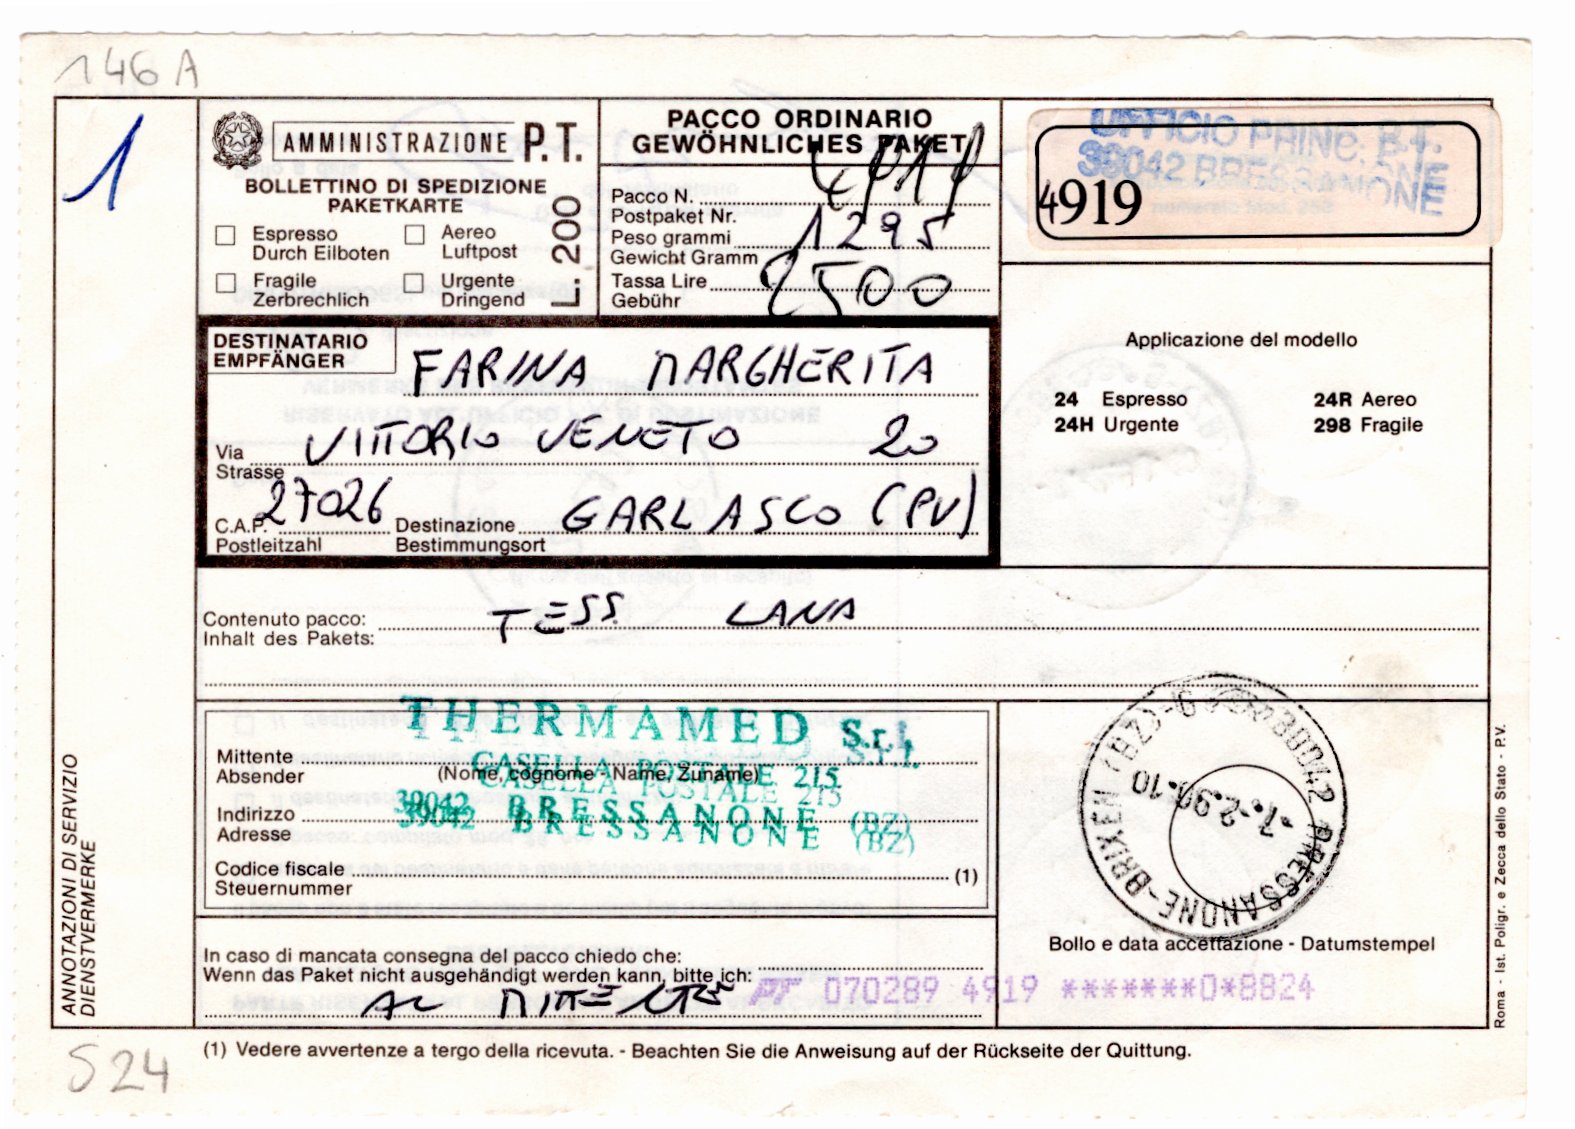 146A
1
AMMINISTRAZIONE P.T.
BOLLETTINO DI SPEDIZIONE
PAKETKARTE
Espresso
Durch Eilboten
Aereo
Luftpost
Fragile
Zerbrechlich
Urgente
Dringend
L. 200
PACCO ORDINARIO
GEWÖHNLICHES PAKET
Pacco N. 4919
Postpaket Nr.
Peso grammi 1295
Gewicht Gramm
Tassa Lire 2500
Gebühr
UFFICIO PRINC. P.T.
39042 BRESSANONE
4919
Applicazione del modello
24 Espresso
24R Aereo
24H Urgente
298 Fragile
DESTINATARIO
EMPFÄNGER
FARINA MARGHERITA
Via VITTORIO VENETO 20
Strasse
C.A.P. 27026 Destinazione GARLASCO (PV)
Postleitzahl Bestimmungsort
Contenuto pacco: TESS. LANA
Inhalt des Pakets:
THERMAMED S.r.l.
Mittente
Absender
(Nome, cognome - Name, Zuname)
CASELLA POSTALE 215
Indirizzo 39042 BRESSANONE (BZ)
Adresse
Codice fiscale (1)
Steuernummer
39042 BRESSANONE-BRIXEN (BZ)
-7.-2.90.10
Bollo e data accettazione - Datumstempel
In caso di mancata consegna del pacco chiedo che:
Wenn das Paket nicht ausgehändigt werden kann, bitte ich:
AL MITTENTE
PF 070289 4919 *******0*8824
ANNOTAZIONI DI SERVIZIO
DIENSTVERMERKE
Roma - Ist. Poligr. e Zecca dello Stato - P.V.
(1) Vedere avvertenze a tergo della ricevuta. - Beachten Sie die Anweisung auf der Rückseite der Quittung.
S24